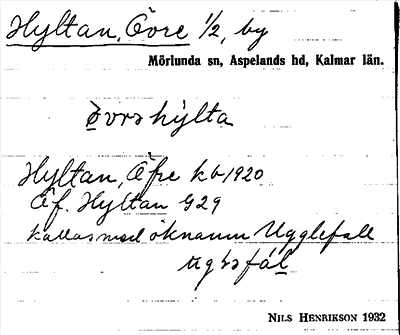 Hyltan, Övre 1/2, by
Mörlunda sn, Aspelands hd, Kalmar län.
övrshỳlta
Hyltan, Öfre kb 1920
Öf. Hyltan G29
kallas med öknamn Ugglefall
ugrsfál
NILS HENRIKSON 1932